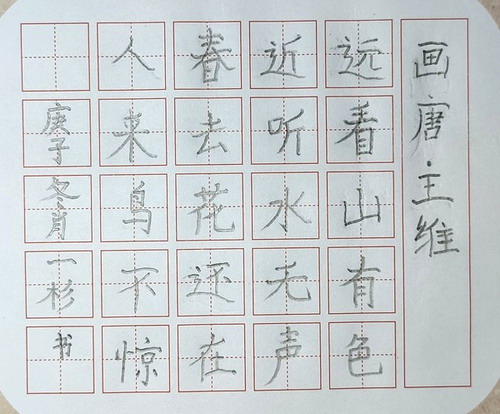 画唐·王维
远看山有色
近听水无声
春去花还在
人来鸟不惊
庚子冬肖一杉书